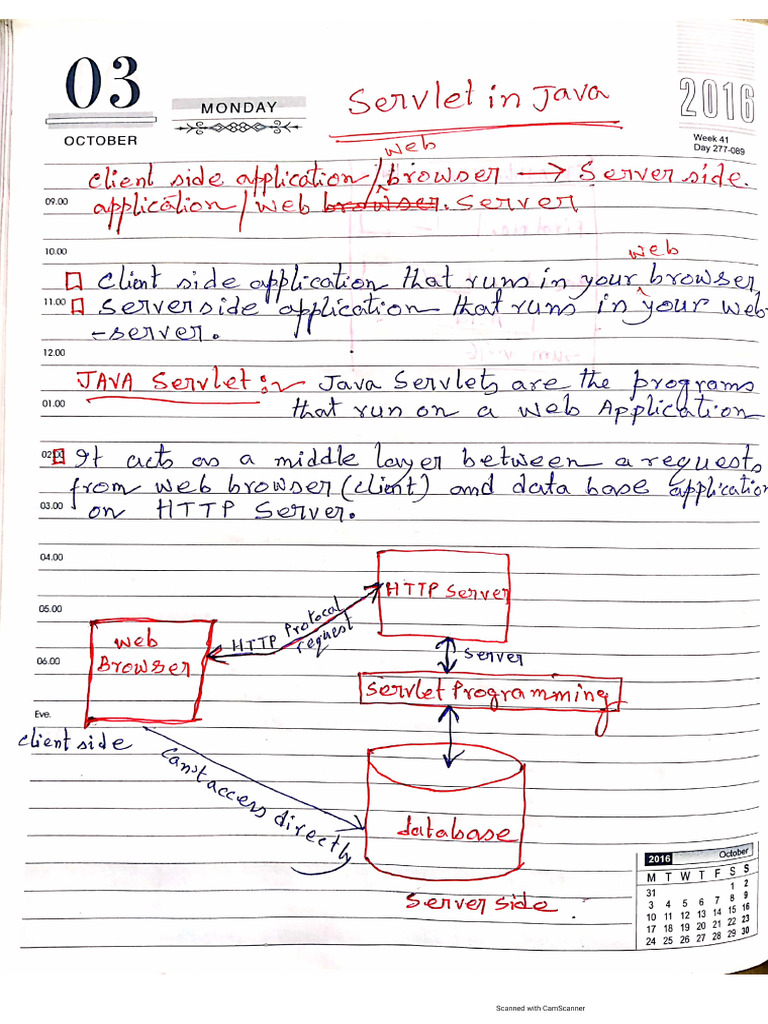 03
MONDAY
OCTOBER
Servlet in Java
2016
Week 41
Day 277-089
web
client side application/browser → Server side.
09.00
application/web browser. Server
10.00
web
Client side application that runs in your browser,
11.00
Server side application that runs in your web-
-server.
12.00
JAVA Servlet:~ Java Servlets are the programs
01.00
that run on a Web Application
02.00
It acts as a middle layer between a requests
from web browser (client) and data base application
03.00
on HTTP Server.
04.00
HTTP Server
05.00
HTTP Protocal
request
web
Browser
06.00
Server
Servlet Programming
Eve.
client side
Canst access directly
database
Server side
2016 October
M T W T F S S
31 1 2
3 4 5 6 7 8 9
10 11 12 13 14 15 16
17 18 19 20 21 22 23
24 25 26 27 28 29 30
Scanned with CamScanner